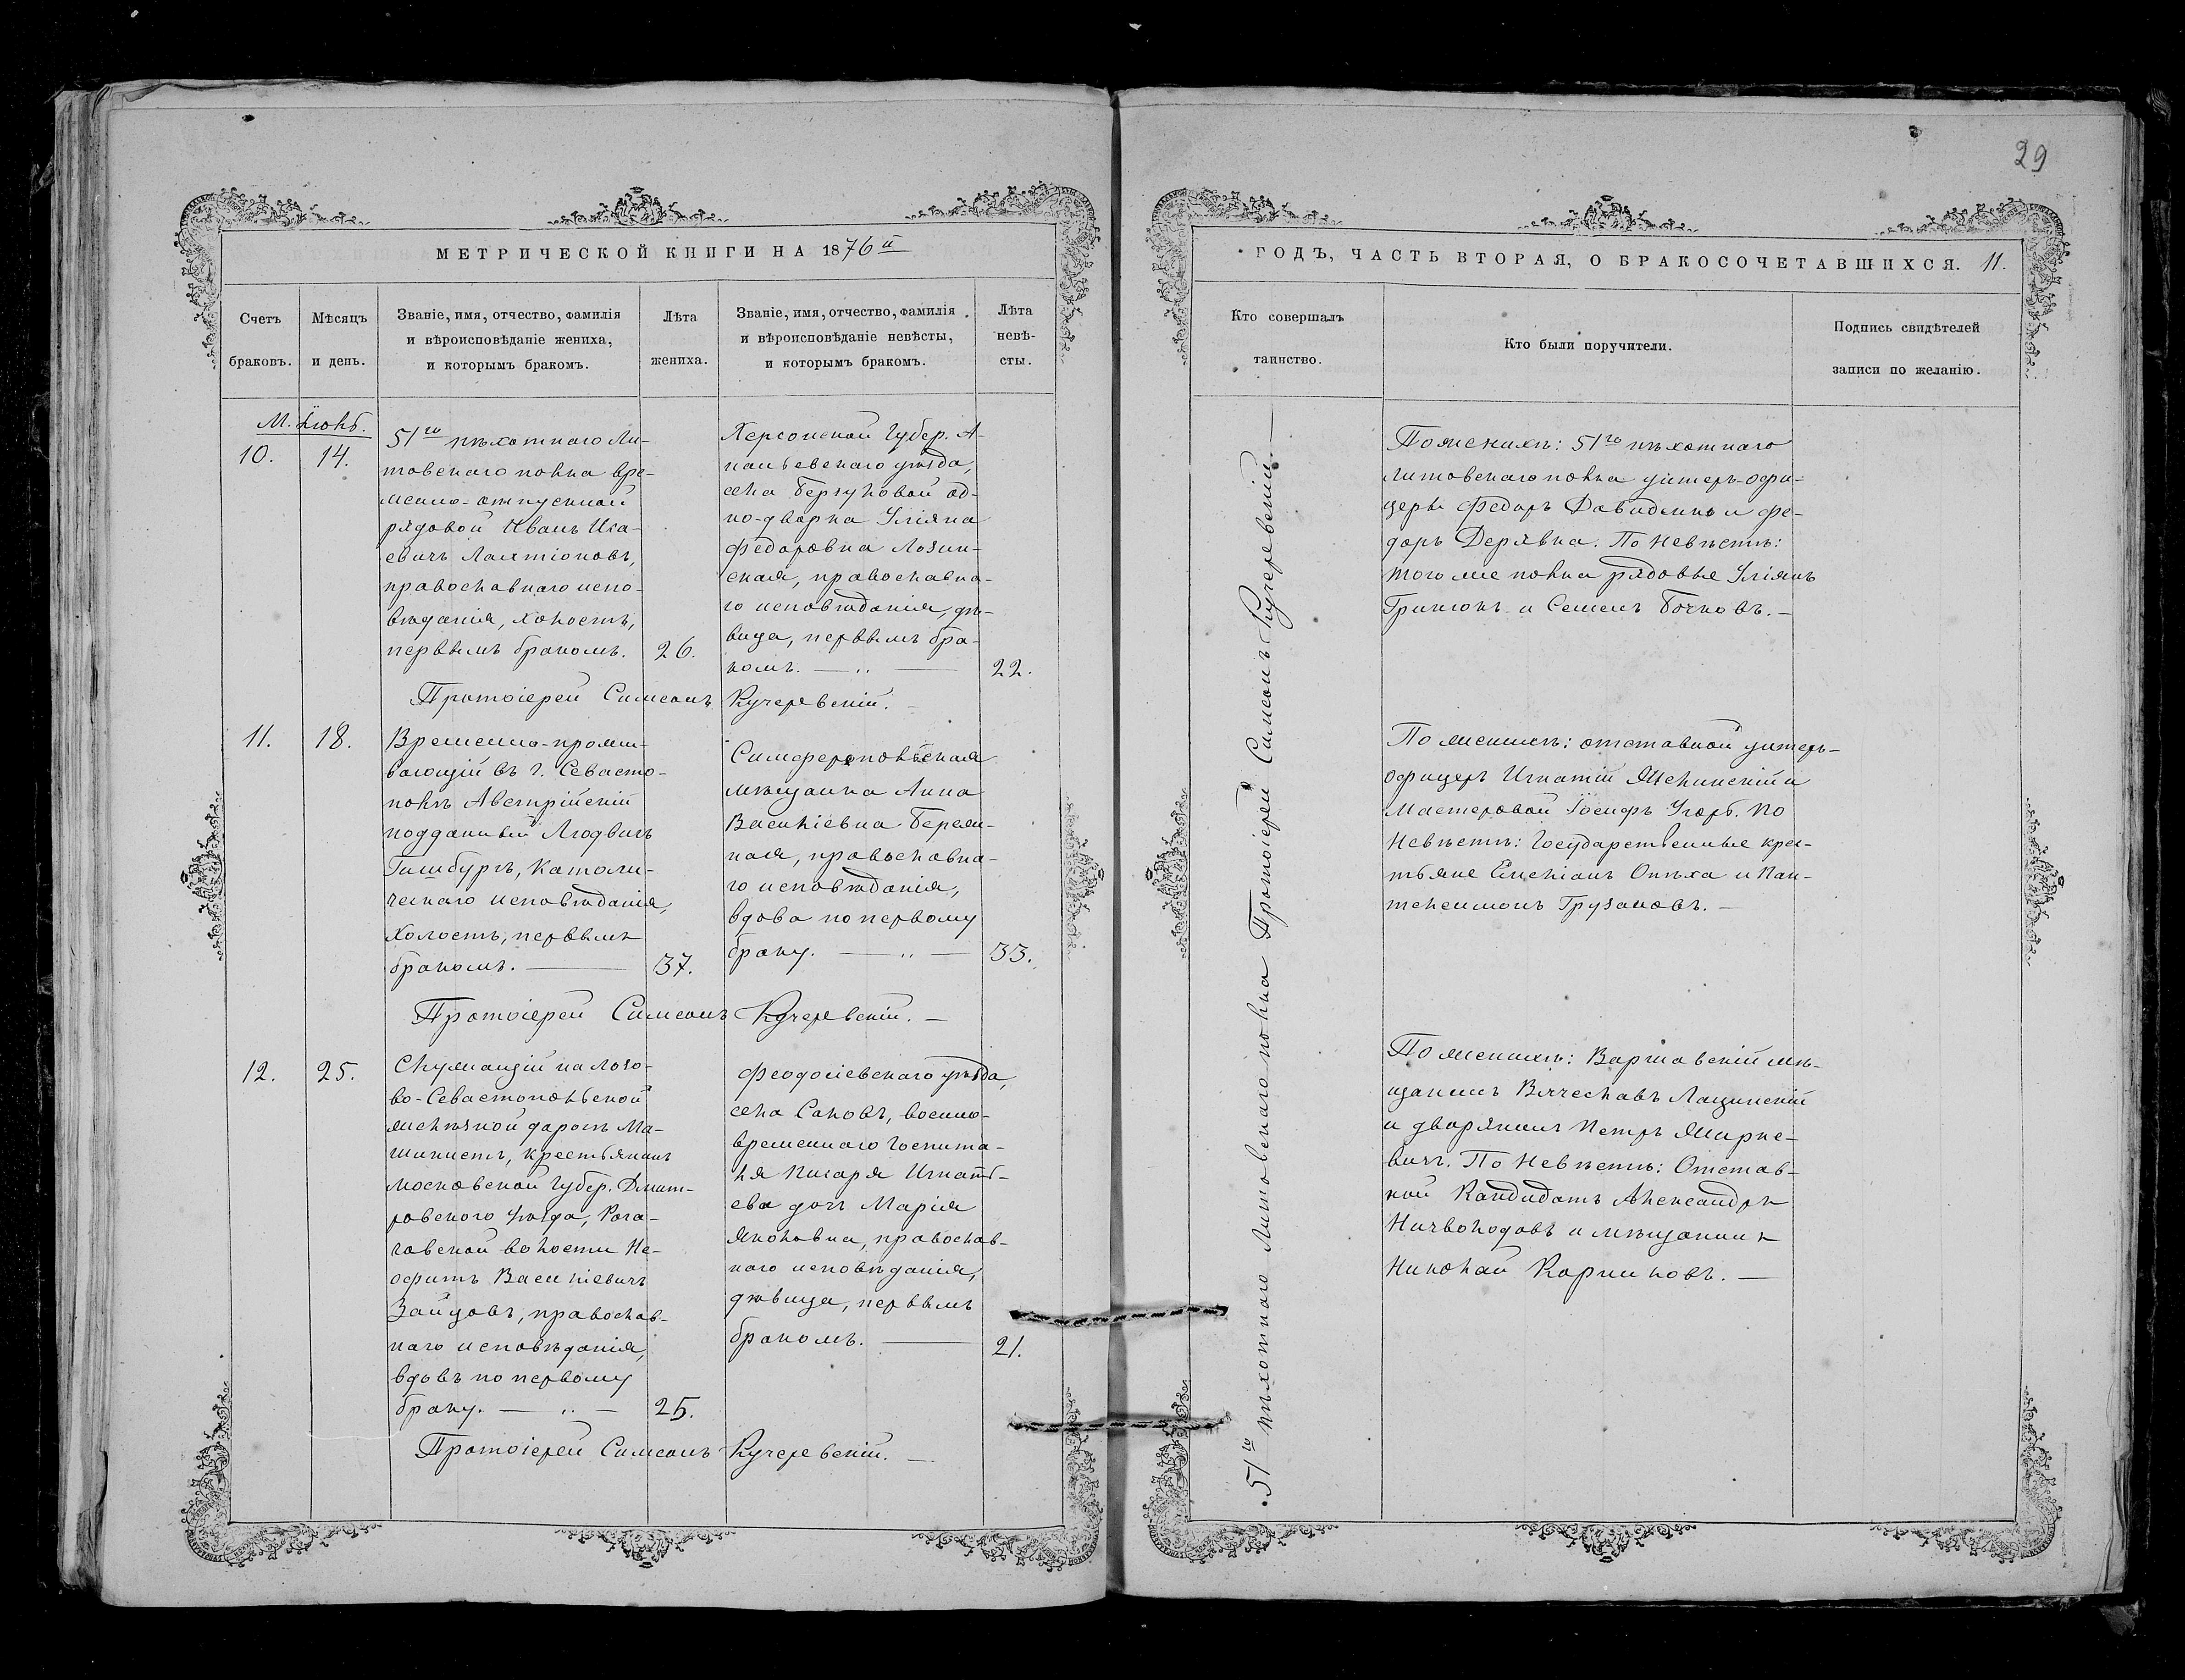 29
МЕТРИЧЕСКОЙ КНИГИ НА 1876й
Счетъ
браковъ.
Мѣсяцъ
и день.
Званіе, имя, отчество, фамилія
и вѣроисповѣданіе жениха,
и которымъ бракомъ.
Лѣта
жениха.
Званіе, имя, отчество, фамилія
и вѣроисповѣданіе невѣсты,
и которымъ бракомъ.
Лѣта
невѣ-
сты.
М. Іюнь.
10.
14.
51го пѣхотнаго Ли-
товскаго полка вре-
менно-отпускной
рядовой Иванъ Иса-
евичъ Лактіоновъ,
православнаго испо-
вѣданія, холостъ,
первымъ бракомъ.
26.
Херсонской Губер. А-
наньевскаго уѣзда,
села Берзуловой од-
но-дворка Уліяна
Федоровна Лозин-
ская, православна-
го исповѣданія, дѣ-
вица, первымъ бра-
комъ.
22.
Протоіерей Симеонъ Кучеревскій.
11.
18.
Временно-прожи-
вающій въ г. Севасто-
полѣ Австрійскій
подданный Людвигъ
Гишбургъ, Католи-
ческаго исповѣданія,
холостъ, первымъ
бракомъ.
37.
Симферопольская
мѣщанка Анна
Василіевна Береж-
ная, православна-
го исповѣданія,
вдова по первому
браку.
33.
Протоіерей Симеонъ Кучеревскій.
12.
25.
Служащій на Лозо-
во-Севастопольской
желѣзной дорогѣ Ма-
шинистъ, крестьянинъ
Московской Губер. Дмит-
ровского Уѣзда, Рога-
човской волости Не-
офитъ Василіевичъ
Зайцовъ, православ-
наго исповѣданія,
вдовъ по первому
браку.
25.
Феодосіевскаго уѣзда,
села Саловъ, военно-
временнаго Госпита-
ля Писаря Игнать-
ева дочь Марія
Яковлевна, православ-
наго исповѣданія,
дѣвица, первымъ
бракомъ.
21.
Протоіерей Симеонъ Кучеревскій.
ГОДЪ, ЧАСТЬ ВТОРАЯ, О БРАКОСОЧЕТАВШИХСЯ. 11.
Кто совершалъ
таинство.
Кто были поручители.
Подпись свидѣтелей
записи по желанію.
51го пѣхотнаго Литовскаго полка Протоіерей Симеонъ Кучеревскій.
По женихѣ: 51го пѣхотнаго
Литовскаго полка унтеръ-офи-
церы Федоръ Давиденко и Фе-
доръ Дерявка. По Невѣстѣ:
того же полка рядовые Уліянъ
Гринюкъ и Семенъ Бочковъ.
По женихѣ: отставной унтеръ-
офицеръ Игнатій и
Мастеровой Іосифъ Угорь. По
Невѣстѣ: Государственные крес-
тьяне Емеліанъ Опѣха и Пан-
телеимонъ Грузановъ.
По женихѣ: Варшавскій мѣ-
щанинъ Вячеславъ Лащинскій
и дворянинъ Петръ
По Невѣстѣ: Отстав-
ной Кандидатъ Александръ
Ничволодовъ и мѣщанинъ
Николай Корниловъ.